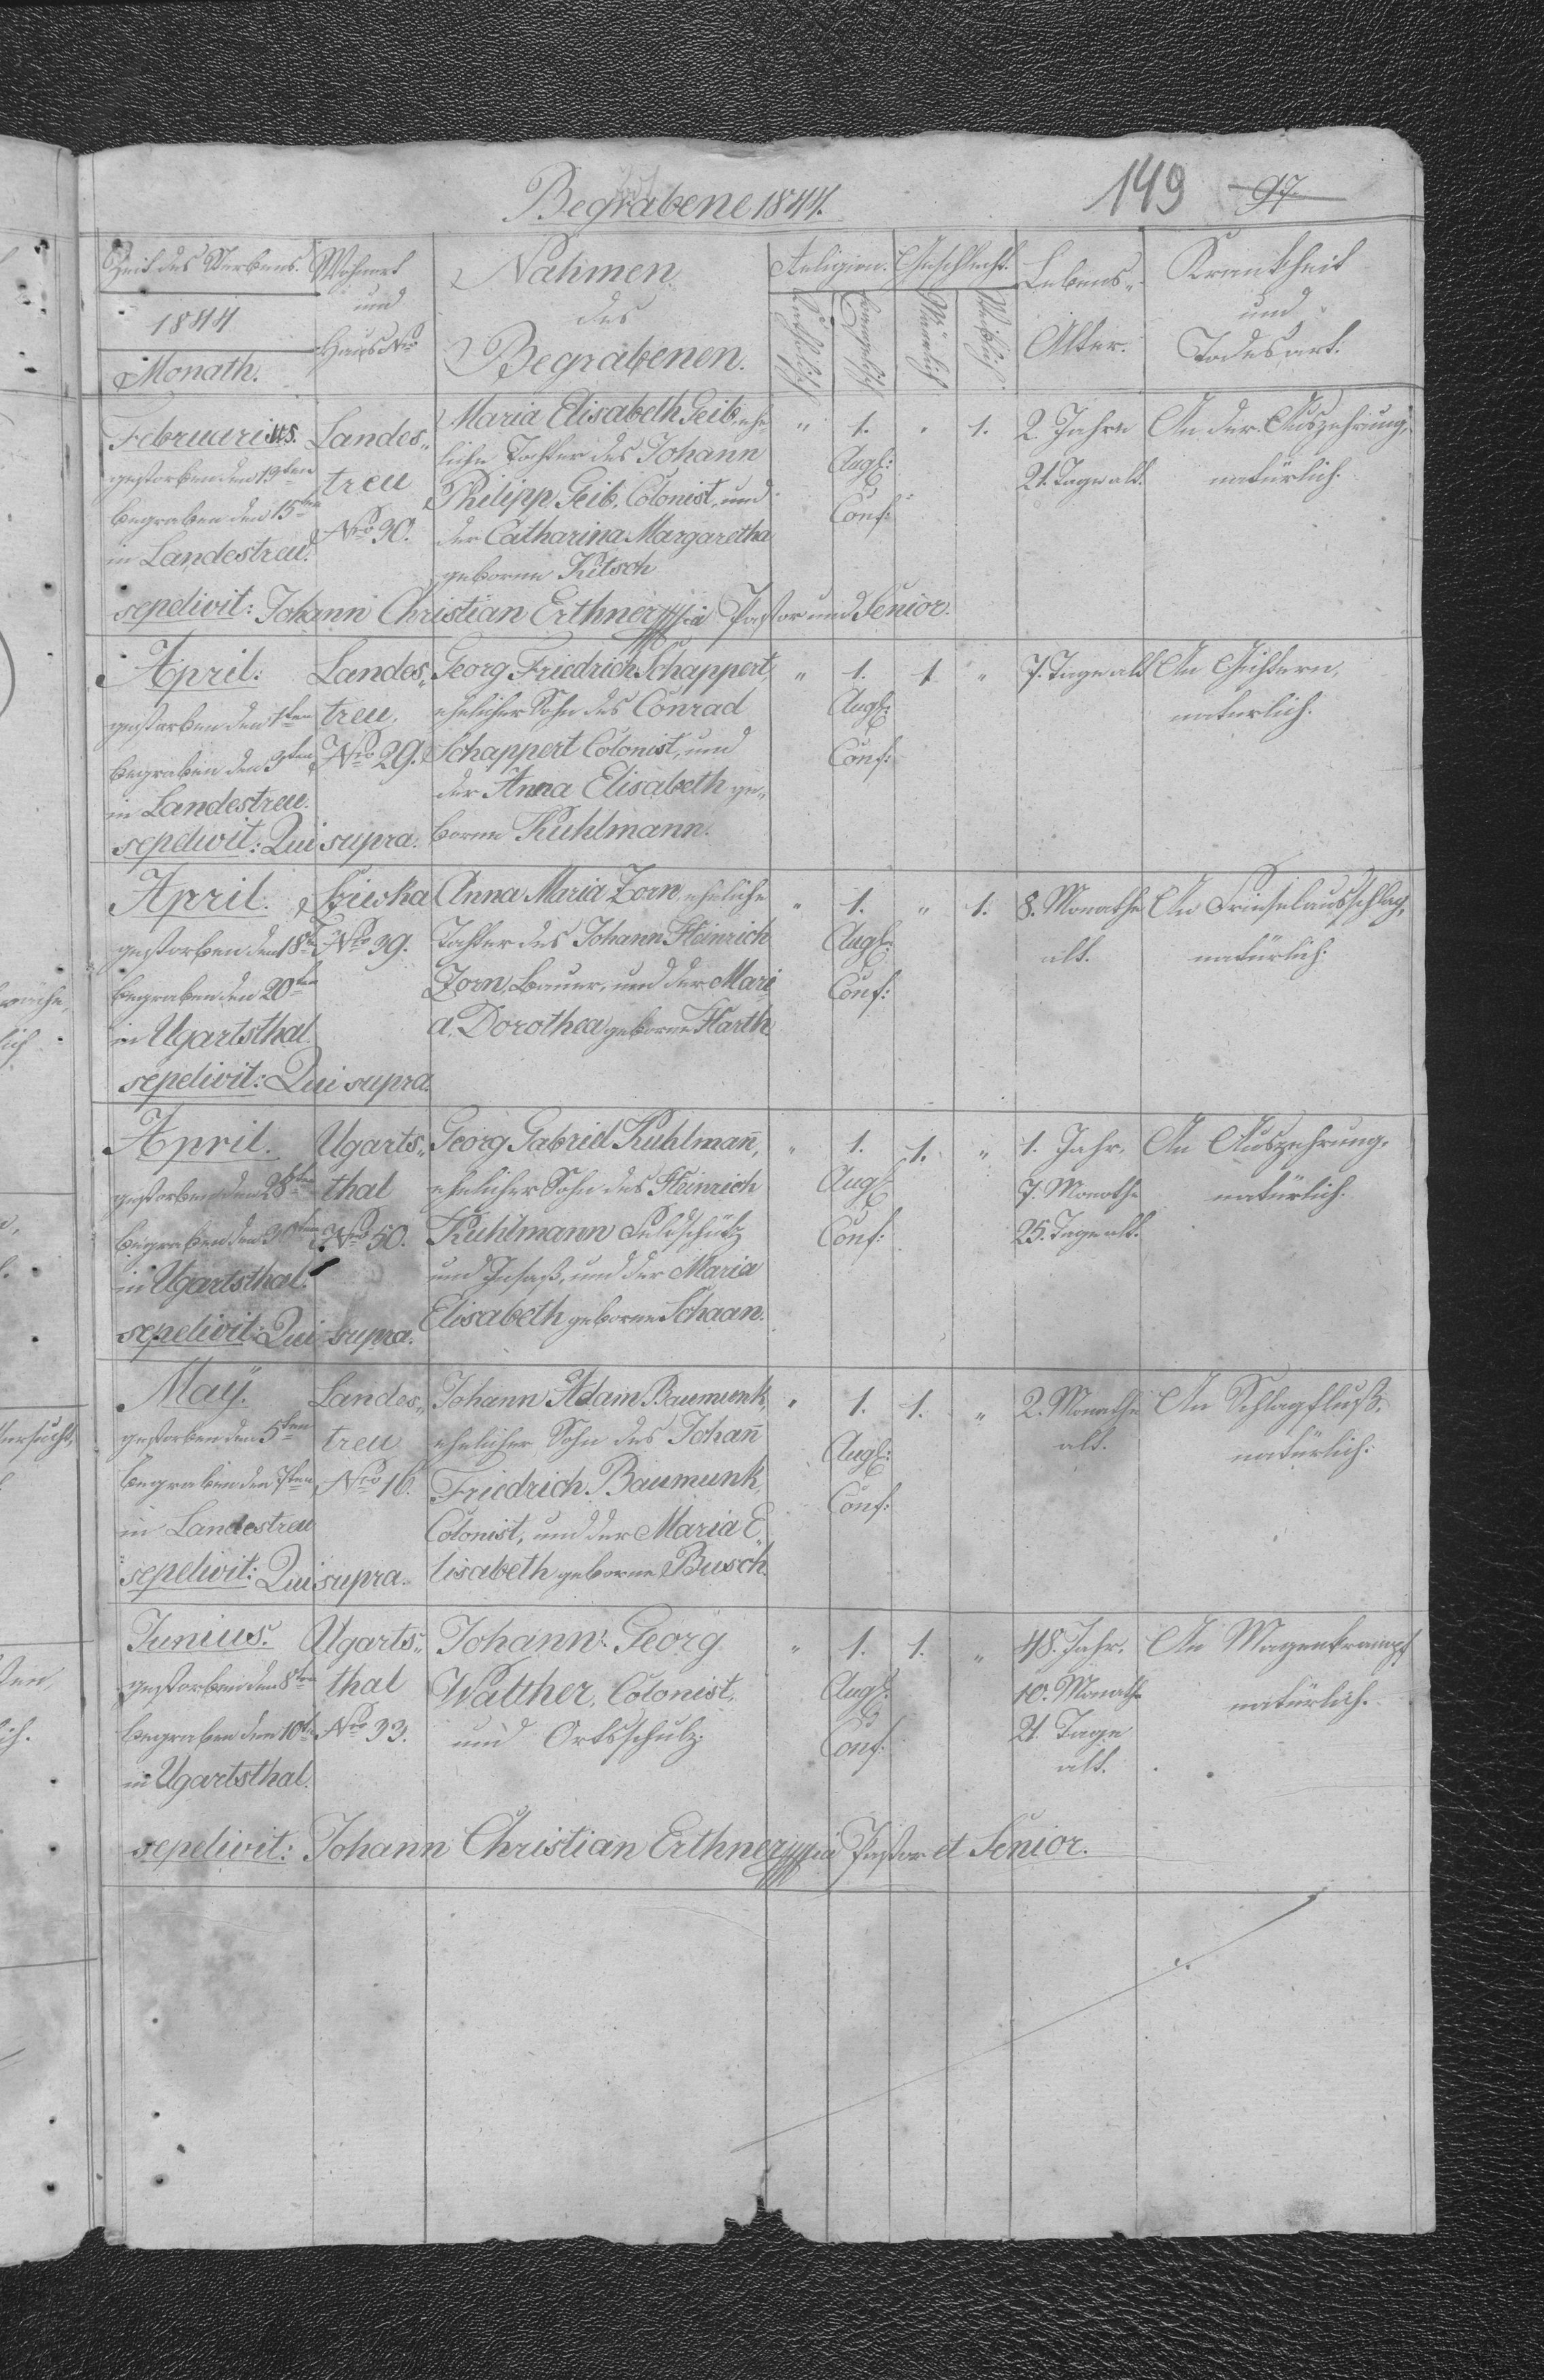 Begrabene 1844.
149 97
Zeit des Sterbens.
1844
Monath.
Wohnort
und
Haus Nro
Nahmen
des
Begrabenen.
Religion.
Katholisch
Evangelisch
Geschlecht.
Männlich
Weiblich
Lebens-
Alter.
Krankheit
und
Todesart.
Februarius.
gestorben den 13ten
begraben den 15ten
in Landestreu.
Landes„
treu
Nro 30.
Maria Elisabeth Geib, ehe-
liche Tochter des Johann
Philipp Geib, Colonist, und
der Catharina Margaretha
geborne Kitsch
„ 1. „ 1.
Augs:
Conf:
2. Jahre
21. Tage alt.
An der Auszehrung,
natürlich.
sepelivit: Johann Christian Erthner mpia Pastor und Senior.
April:
gestorben den 1ten
begraben den 3ten
in Landestreu.
sepelivit: Qui supra.
Landes„
treu.
Nro 29.
Georg Friedrich Schappert,
ehelicher Sohn des Conrad
Schappert Colonist, und
der Anna Elisabeth ge„
borne Kuhlmann.
„ 1. 1 „
Augs:
Conf:
7. Tage alt
An Gichtern,
natürlich.
April.
gestorben den 18ten
begraben den 20ten
in Ugartsthal.
sepelivit: Qui supra.
Siwka
Nro 39.
Anna Maria Zorn, eheliche
Tochter des Johann Heinrich
Zorn, Bauer, und der Mari
a Dorothea geborne Harth
„ 1. „ 1.
Augs:
Conf:
8. Monathe
alt.
An Frieselausschlag,
natürlich.
April.
gestorben den 28ten
begraben den 30ten
in Ugartsthal.
sepelivit: Qui supra.
Ugarts„
thal
Nro 50.
Georg Gabriel Kuhlmañ,
ehelicher Sohn des Heinrich
Kuhlmann Feldschütz
und Insaß, und der Maria
Elisabeth geborne Schaan.
„ 1. 1. „
Augs:
Conf:
1. Jahr,
7. Monathe
25. Tage alt.
An Auszehrung,
natürlich.
Maÿ.
gestorben den 5ten
begraben den 7ten
in Landestreu
sepelivit: Qui supra.
Landes„
treu
Nro 16.
Johann Adam Baumunk,
ehelicher Sohn des Johañ
Friedrich Baumunk,
Colonist, und der Maria E„
lisabeth geborne Busch.
„ 1. 1. „
Augs:
Conf:
2. Monathe
alt.
An Schlagfluß,
natürlich.
Junius.
gestorben den 8ten
begraben den 10ten
in Ugartsthal.
Ugarts„
thal
Nro 33.
Johann Georg
Walther, Colonist,
und Ortsschulz.
„ 1. 1. „
Augs:
Conf:
48. Jahr,
10. Monathe
21. Tage
alt.
An Magenkrampf
natürlich.
sepelivit: Johann Christian Erthner mpia Pastor et Senior.